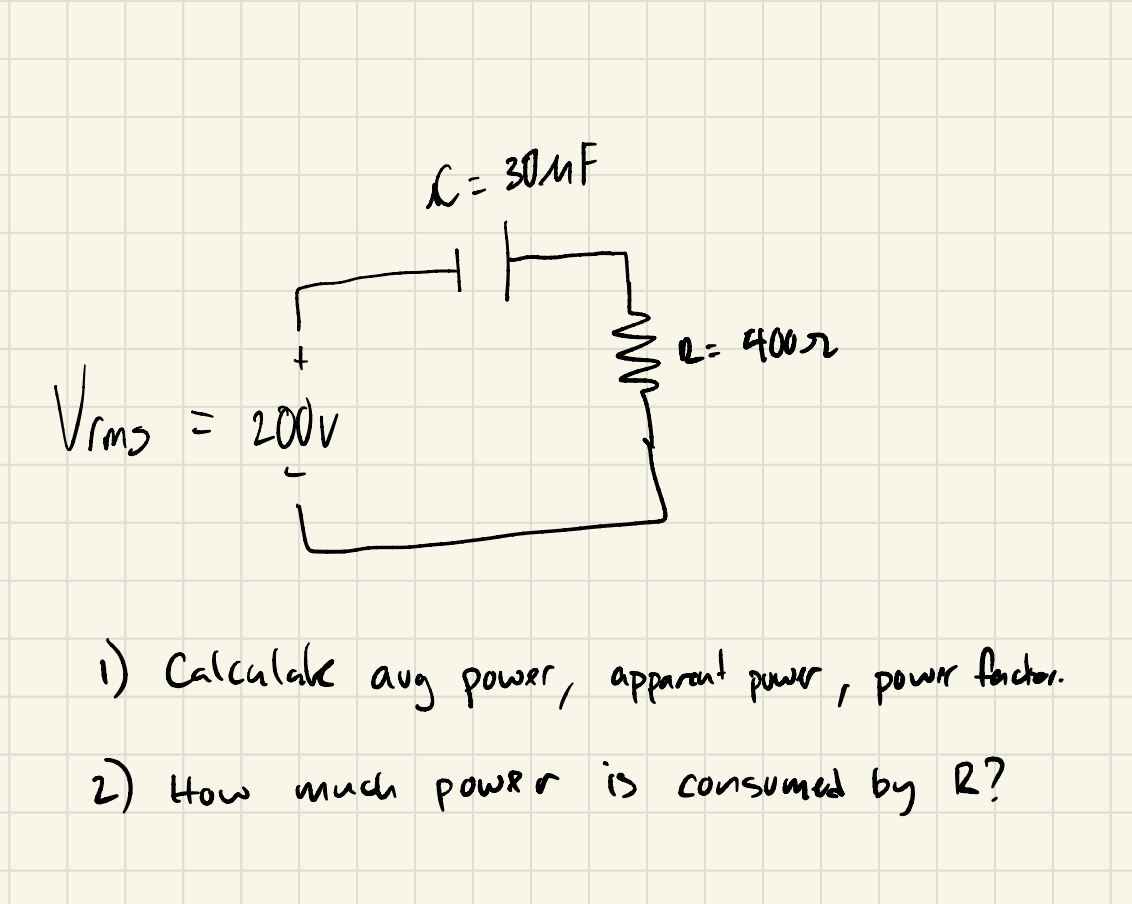 C = 30μF
R = 400Ω
+
Vrms = 200V
-
1) Calculate avg power, apparent power, power factor.
2) How much power is consumed by R?